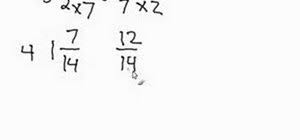 2×7 = 7×2
4 1 7/14 12/14